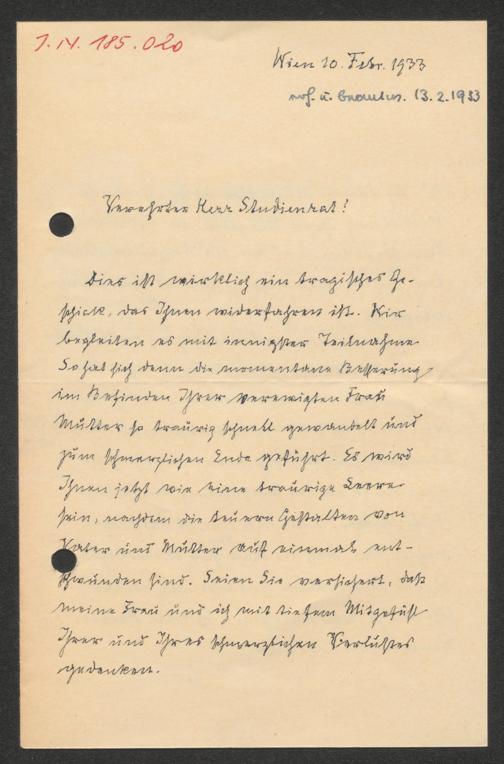 J.N. 185.020
Wien 10. Febr. 1933
erh. u. beantw. 13.2.1933
Verehrter Herr Studienrat!
Dies ist wirklich ein tragisches Ge-
schick, das Ihnen widerfahren ist. Wir
begleiten es mit innigster Teilnahme
So hat sich denn die momentane Besserung
im Befinden Ihrer verewigten Frau
Mutter so traurig schnell gewandelt und
zum schmerzlichen Ende geführt. Es wird
Ihnen jetzt wie eine traurige Leere
sein, nachdem die teuern Gestalten von
Vater und Mutter auf einmal ent-
schwunden sind. Seien Sie versichert, daß
meine Frau und ich mit tiefem Mitgefühl
Ihrer und Ihres schmerzlichen Verlustes
gedenken.